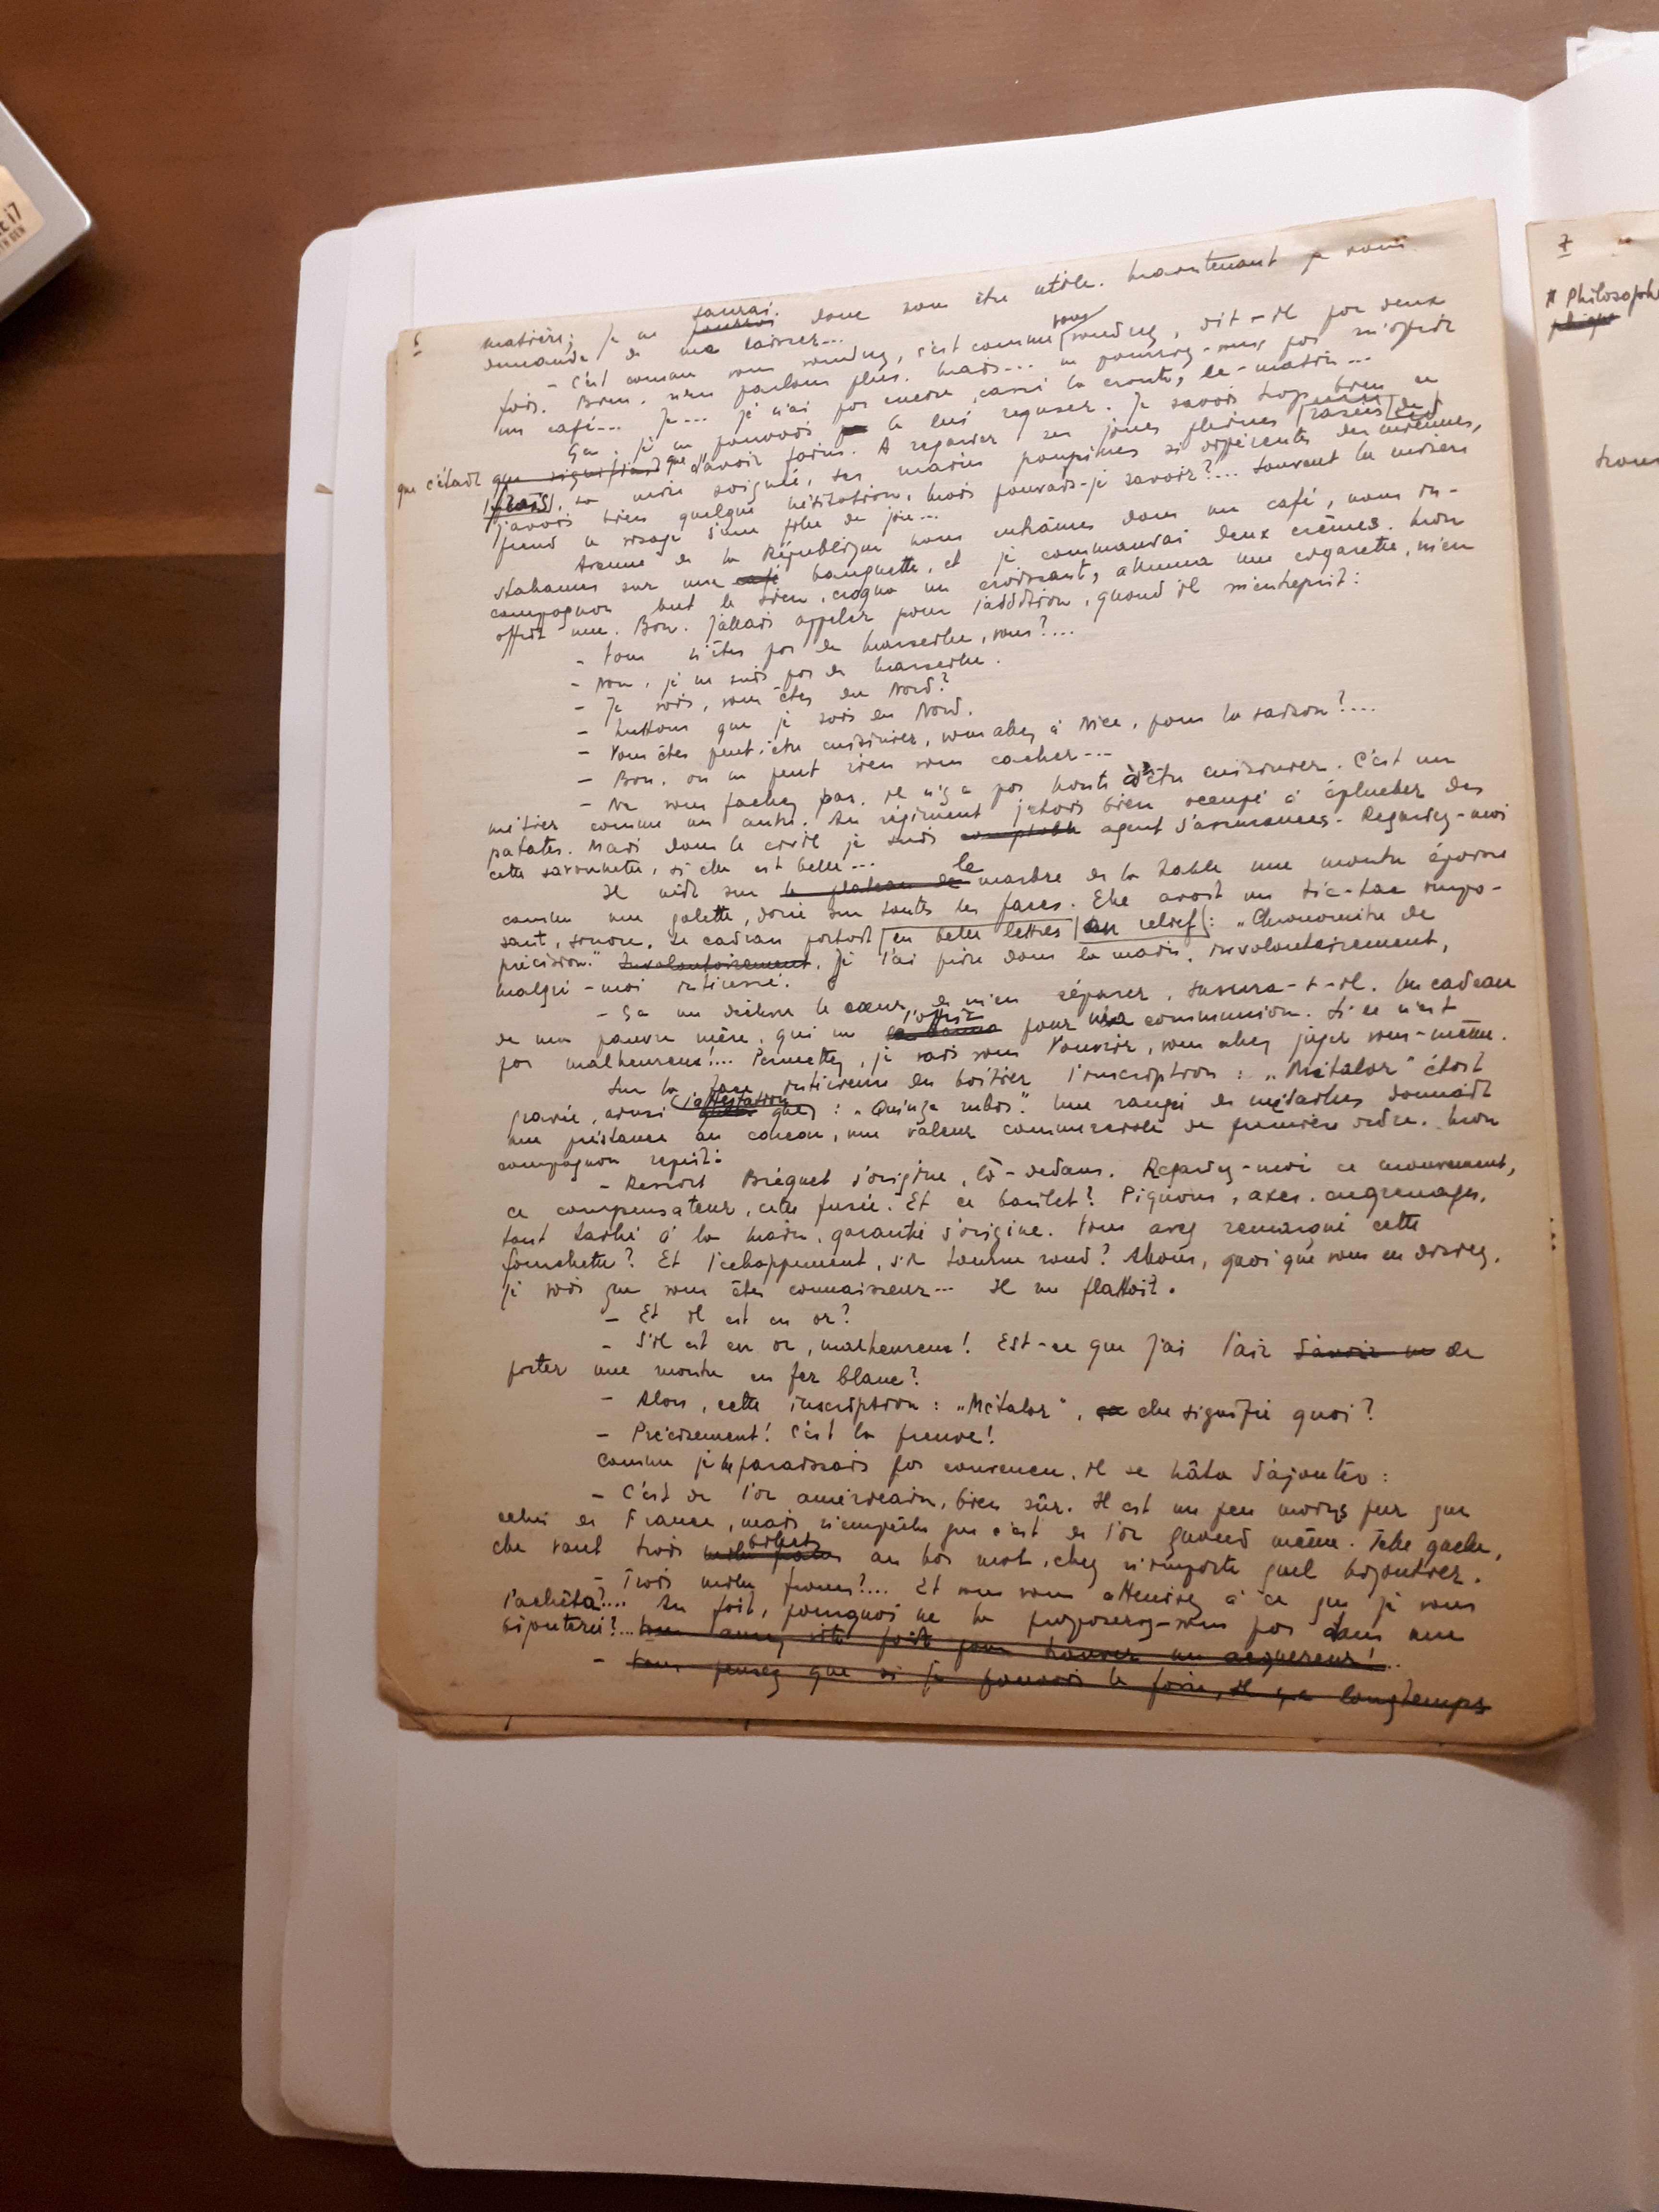 6
saurai
matière; je ne pourrai donc vous être utile. Maintenant je vous
demande de me laisser...
- C'est comme vous voudrez, c'est comme vous voudrez, dit-il par deux
fois. Bien. N'en parlons plus. Mais... ne pourriez-vous pas m'offrir
un café... Je... je n'ai pas encore cassé la croute, ce matin...
Ça, je ne pouvais le lui refuser. Je savais trop bien ce
que c'était que signifiait que d'avoir faim. A regarder ses joues pleines rasées de
frais, sa mise soignée, ses mains poupines si différentes des miennes,
j'avais bien quelque hésitation. Mais pouvais-je savoir?... Souvent la misère
prend le visage d'une fille de joie...
Avenue de la République nous entrâmes dans un café, nous ins-
tallâmes sur une café banquette, et je commandai deux crèmes. Mon
compagnon but le sien, croqua un croissant, alluma une cigarette, m'en
offrit une. Bon. J'allais appeler pour l'addition, quand il m'entreprit:
- Vous n'êtes pas de Marseille, vous?...
- Non, je ne suis pas de Marseille.
- Je vois, vous êtes du Nord?
- Mettons que je sois du Nord.
- Vous êtes peut-être cuisinier, vous allez à Nice, pour la saison?...
- Bon. on ne peut rien vous cacher...
- Ne vous fachez pas. Il n'y a pas honte à être cuisinier. C'est un
métier comme un autre. Au régiment j'étais bien occupé à éplucher des
patates. Mais dans le civil je suis comptable agent d'assurances. Regardez-moi
cette savonnette, si elle est belle...
Il mit sur le plateau de le marbre de la table une montre épaisse
comme une galette, dorée sur toutes les faces. Elle avait un tic-tac impo-
sant, sonore. Le cadran portait en belles lettres en relief: "Chronomètre de
précision." Involontairement. Je l'ai prise dans la main, involontairement,
malgré-moi intéressé.
- Ça me déchire le cœur, de m'en séparer, susurra-t-il. Un cadeau
l'offrit
de ma pauvre mère, qui me la donna pour ma communion. Si ce n'est
pas malheureux!... Permettez, je vais vous l'ouvrir, vous allez juger vous-même.
Sur la face intérieure du boîtier l'inscription: "Métalor" était
l'attestation
gravée, ainsi que: "Quinze rubis". Une rangée de médailles donnait
une prestance au coucou, une valeur commerciale de première ordre. Mon
compagnon reprit:
- Ressort Bréguet d'origine, là-dedans. Regardez-moi ce mouvement,
ce compensateur, cette fusée. Et ce barillet? Pignons, axes, engrenages,
tout taillé à la main, garantie d'origine. Vous avez remarqué cette
fourchette? Et l'échappement, s'il tourne rond? Allons, quoi que vous en disiez,
je vois que vous êtes connaisseur... Il me flattait.
- Et il est en or?
- S'il est en or, malheureux! Est-ce que j'ai l'air d'avoir une de
porter une montre en fer blanc?
- Alors, cette inscription: "Métalor", ça elle signifie quoi?
- Précisement! C'est la preuve!
Comme je ne paraissais pas convaincu, il se hâta d'ajouter:
- C'est de l'or américain, bien sûr. Il est un peu moins pur que
celui de France, mais n'empêche que c'est de l'or quand même. Telle quelle,
billets
elle vaut trois mille francs au bas mot, chez n'importe quel bijoutier.
- Trois mille francs?... Et vous vous attendez à ce que je vous
l'achète?... Au fait, pourquoi ne la proposerez-vous pas dans une
bijouterie?... Vous auriez vite fait pour trouver un acquereur!...
- Vous pensez que si je pouvais le faire, il y a longtemps
7
# Philosoph